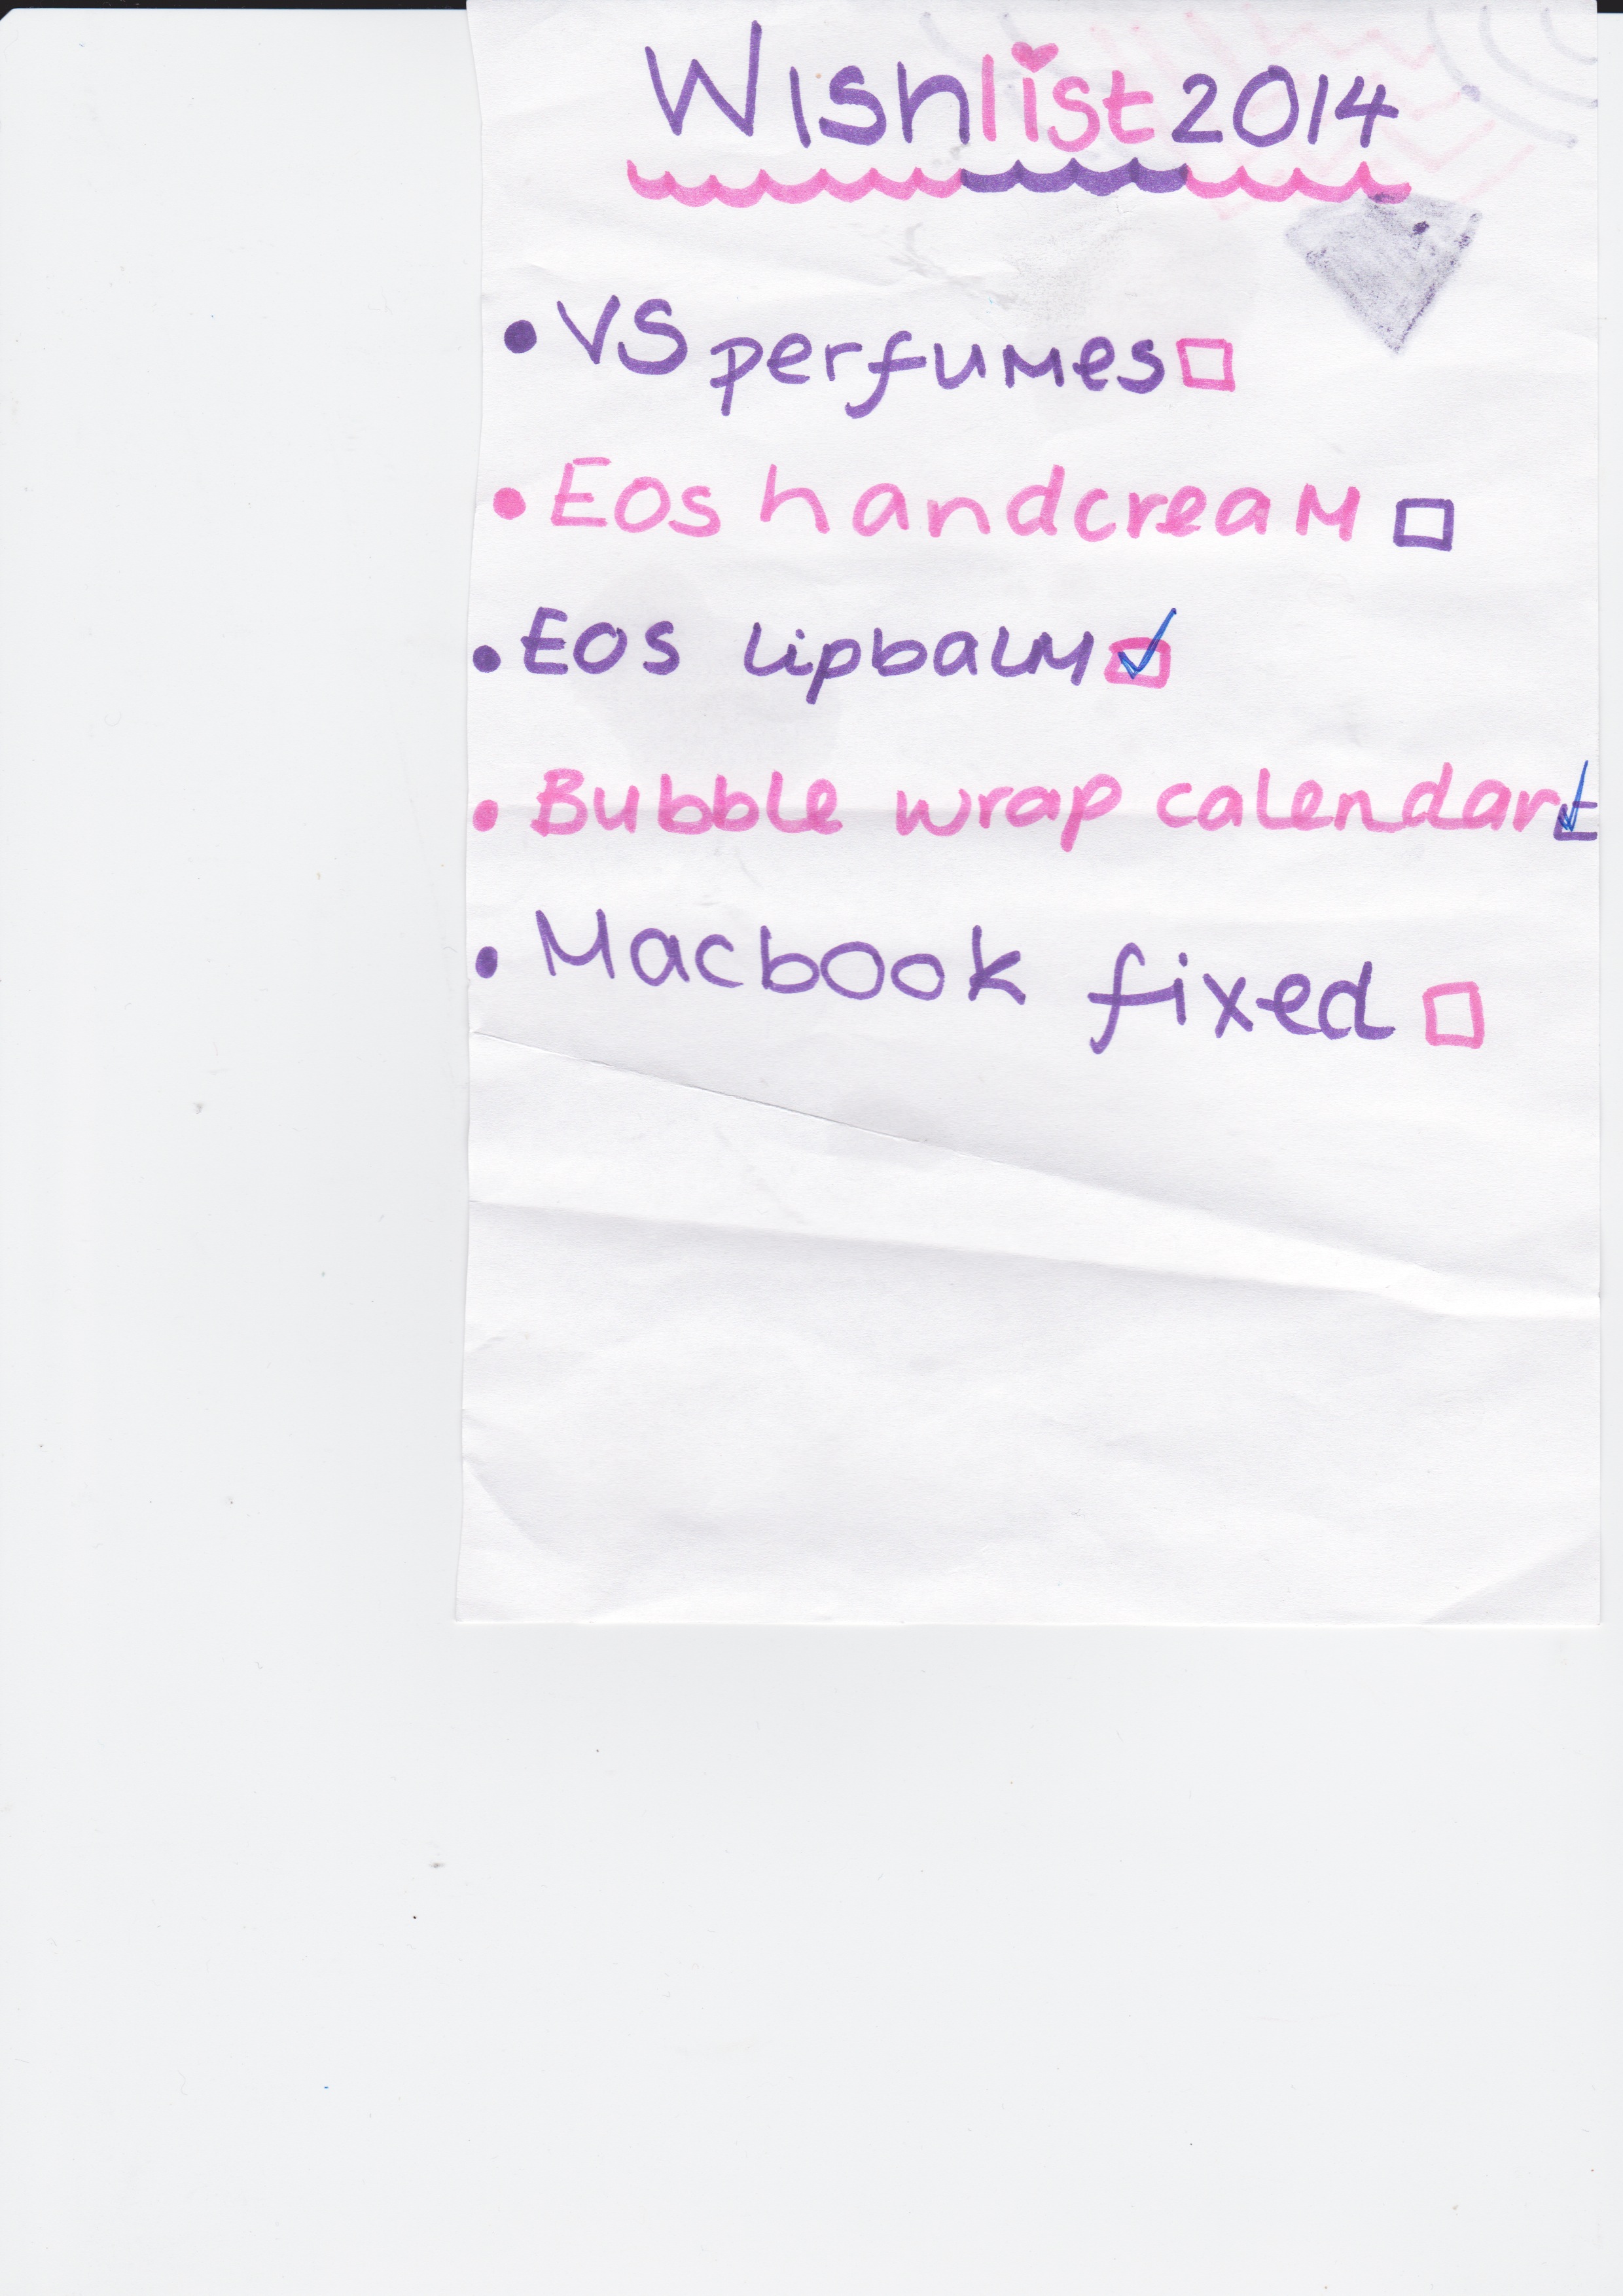 Wishlist 2014
• VS perfumes ☐
• Eos handcream ☐
• Eos lipbalm ☑
• Bubble wrap calendar ☑
• Macbook fixed ☐